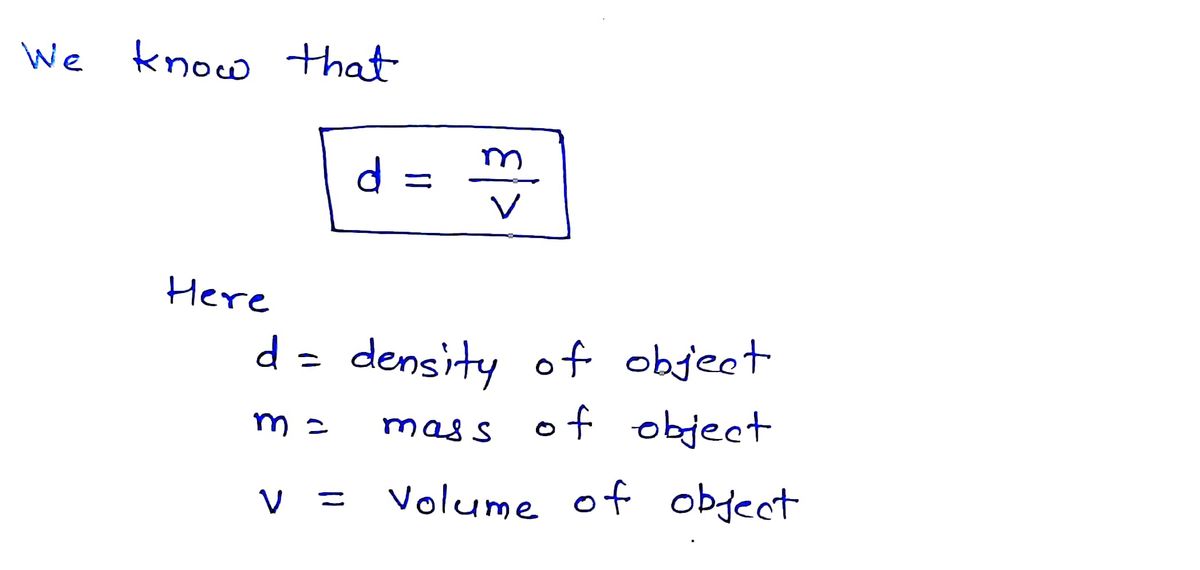 We know that
d = m/v
Here
d = density of object
m = mass of object
v = Volume of object